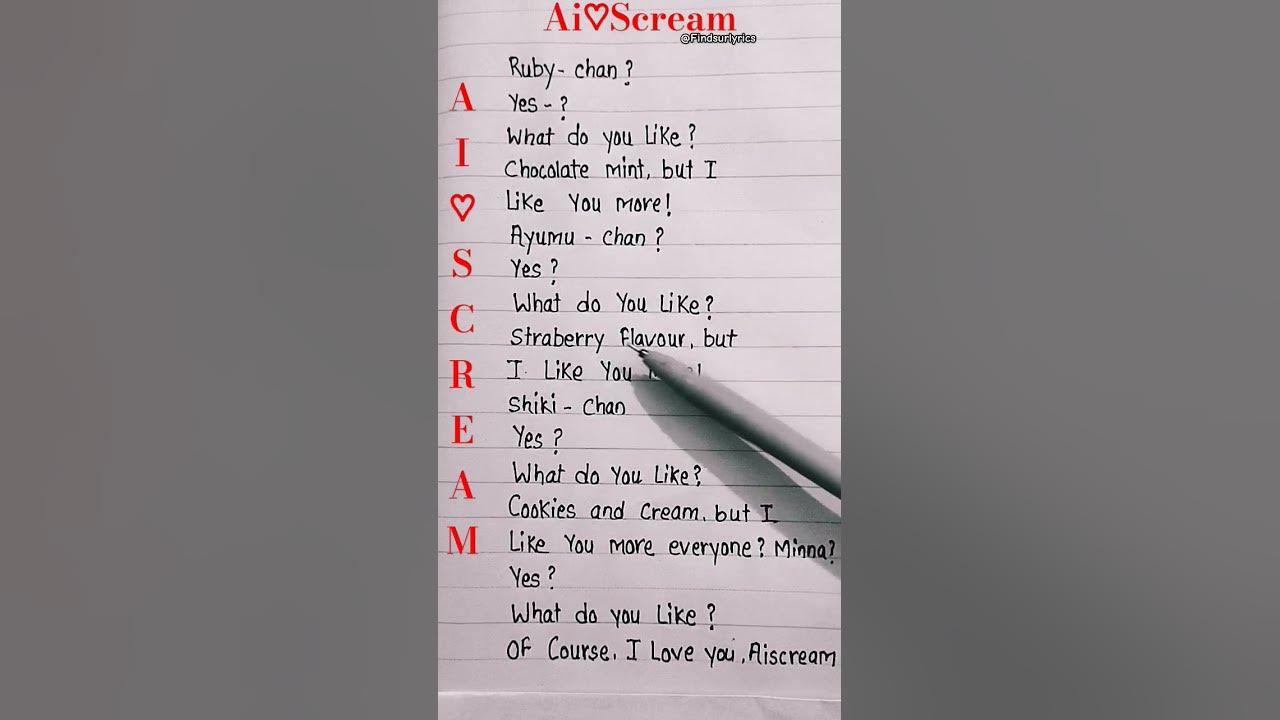 Ai♡Scream
@Findsurlyrics
A
I
♡
S
C
R
E
A
M
Ruby- chan?
Yes-?
What do you Like?
Chocolate mint, but I
Like You more!
Ayumu - chan?
Yes?
What do You Like?
Straberry flavour, but
I Like You
Shiki - Chan
Yes?
What do You Like?
Cookies and Cream, but I
Like You more everyone? Minna?
Yes?
What do you Like?
Of Course, I Love you, Aiscream